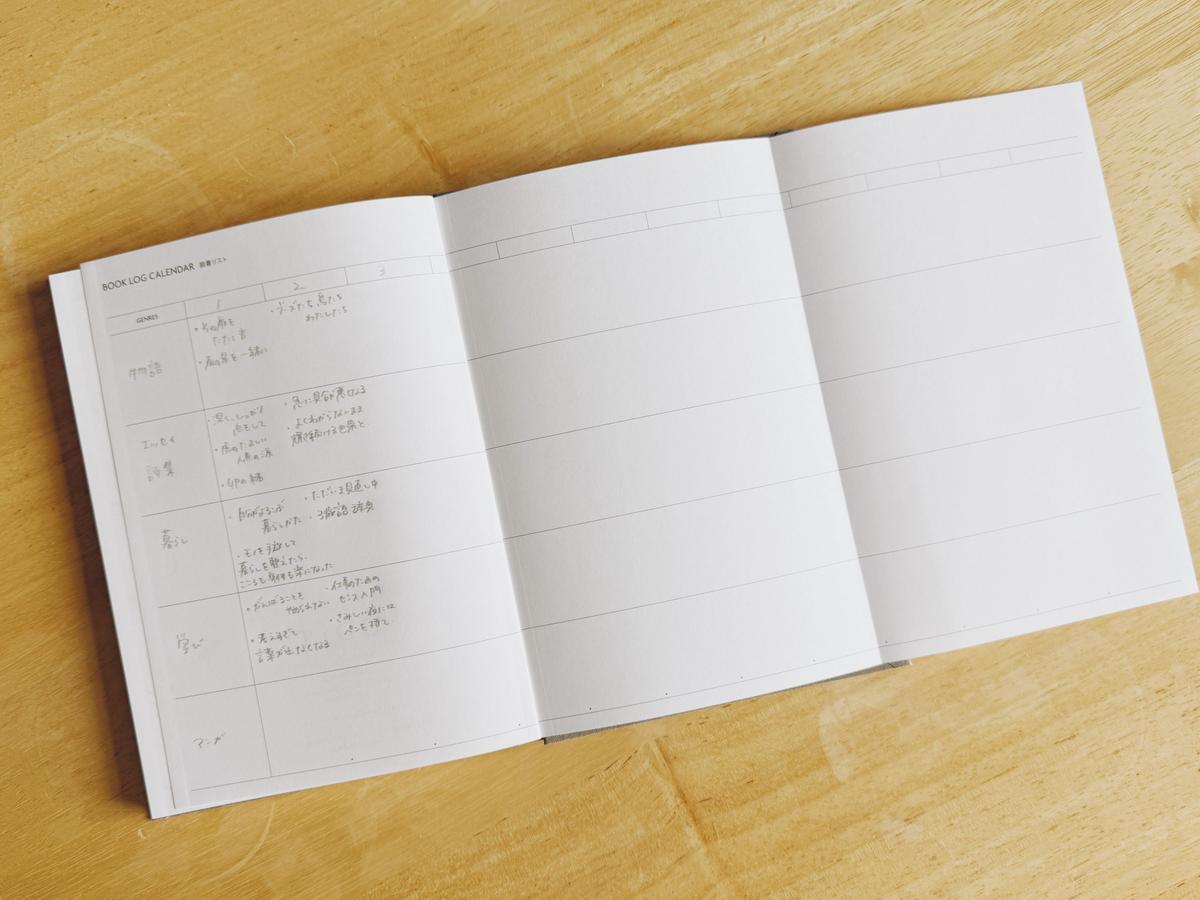 BOOK LOG CALENDAR 読書リスト
GENRES
1
2
3
物語
・グーズたち、鳥たち
わたしたち
・月の星を一緒に
エッセイ
詩集
・深く、しっかり
息をして
・急に具合が悪くなる
・よくわからないまま
輝き続ける色彩と
・虎のたましい
人魚の涙
・卵の緒
暮らし
・自分がよろこぶ
暮らしかた
・ただいま見直し中
・3歳語辞典
・モノを手放して
暮らしを整えたら、
こころも身体も楽になった
学び
・がんばることを
やめられない
・仕事のための
センス入門
・さみしい夜には
ペンを持て
・考えすぎて
言葉が出なくなる
マンガ